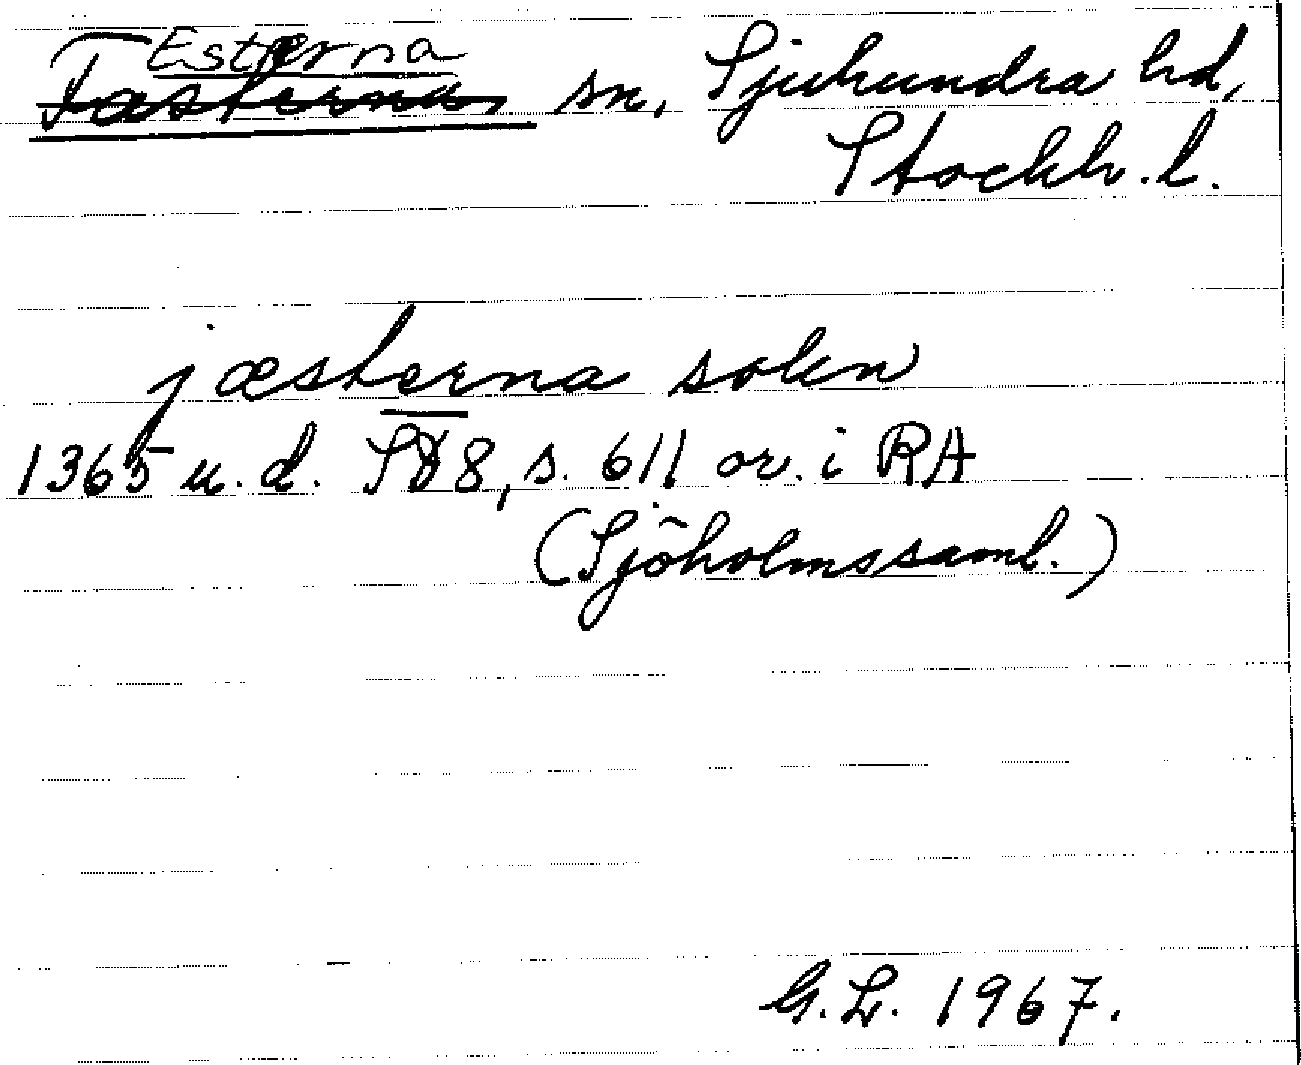 Esterna
Fasterna sn, Sjuhundra hd,
Stockh. l.
jæsterna sokn
1365 u. d. SD 8, s. 611 or. i RA
(Sjöholmssaml.)
G.L. 1967.